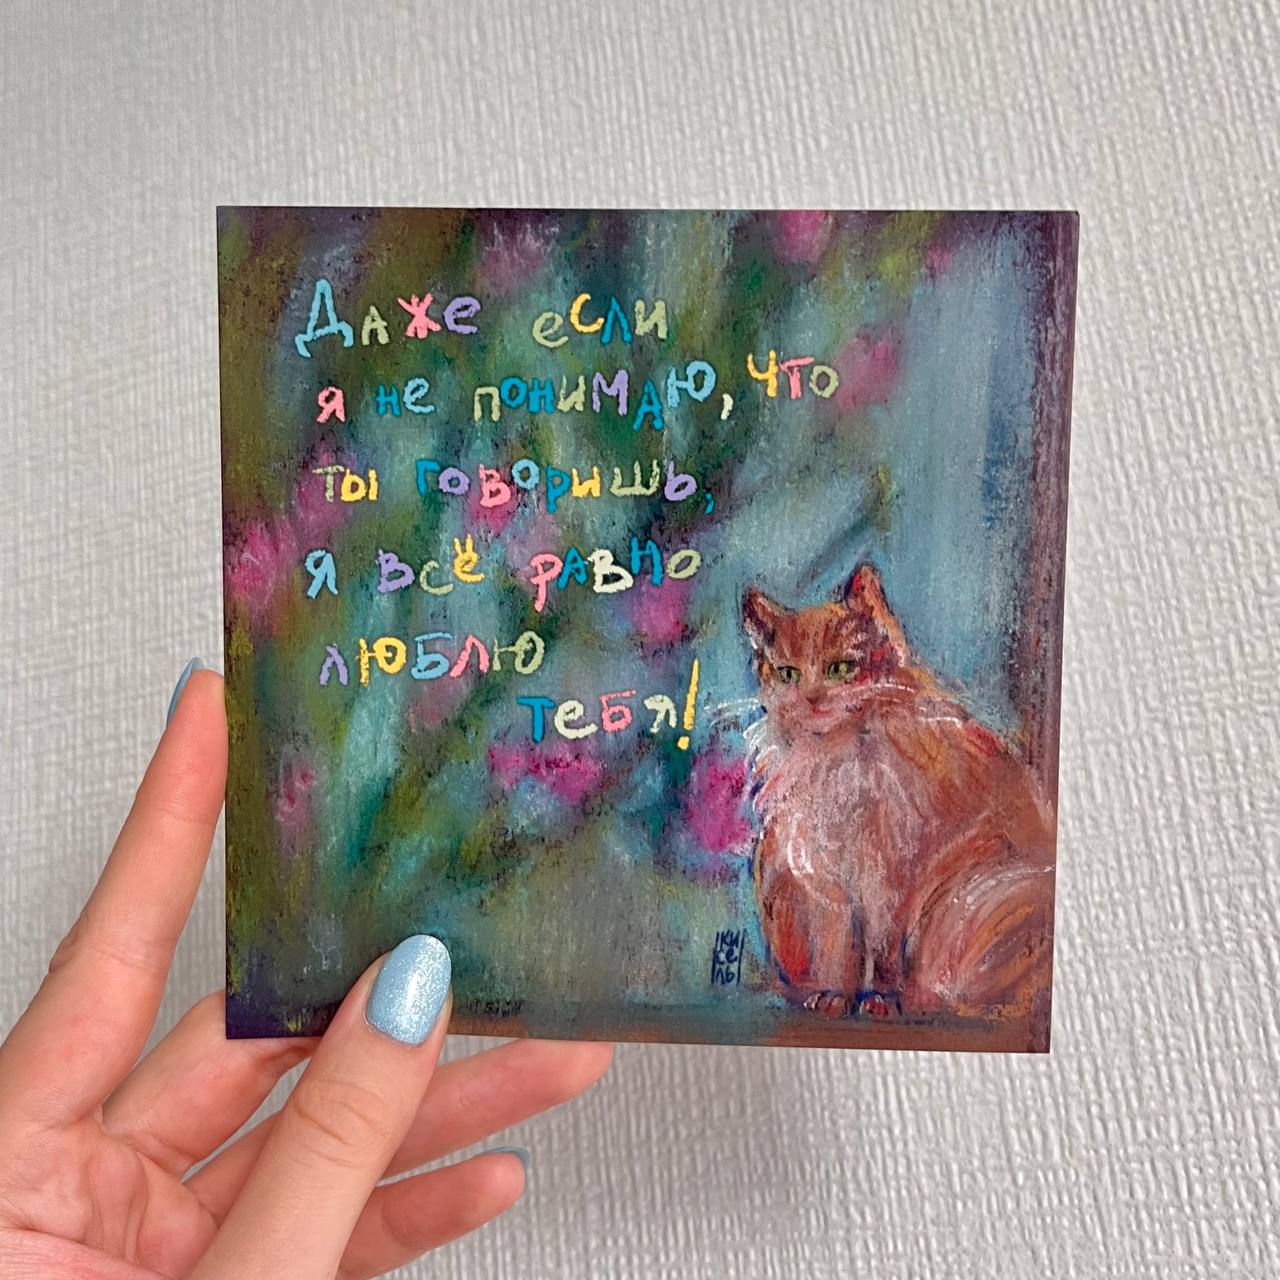 Даже если
я не понимаю, что
ты говоришь,
я всё равно
люблю
тебя!
КИ
СЕ
ЛЬ